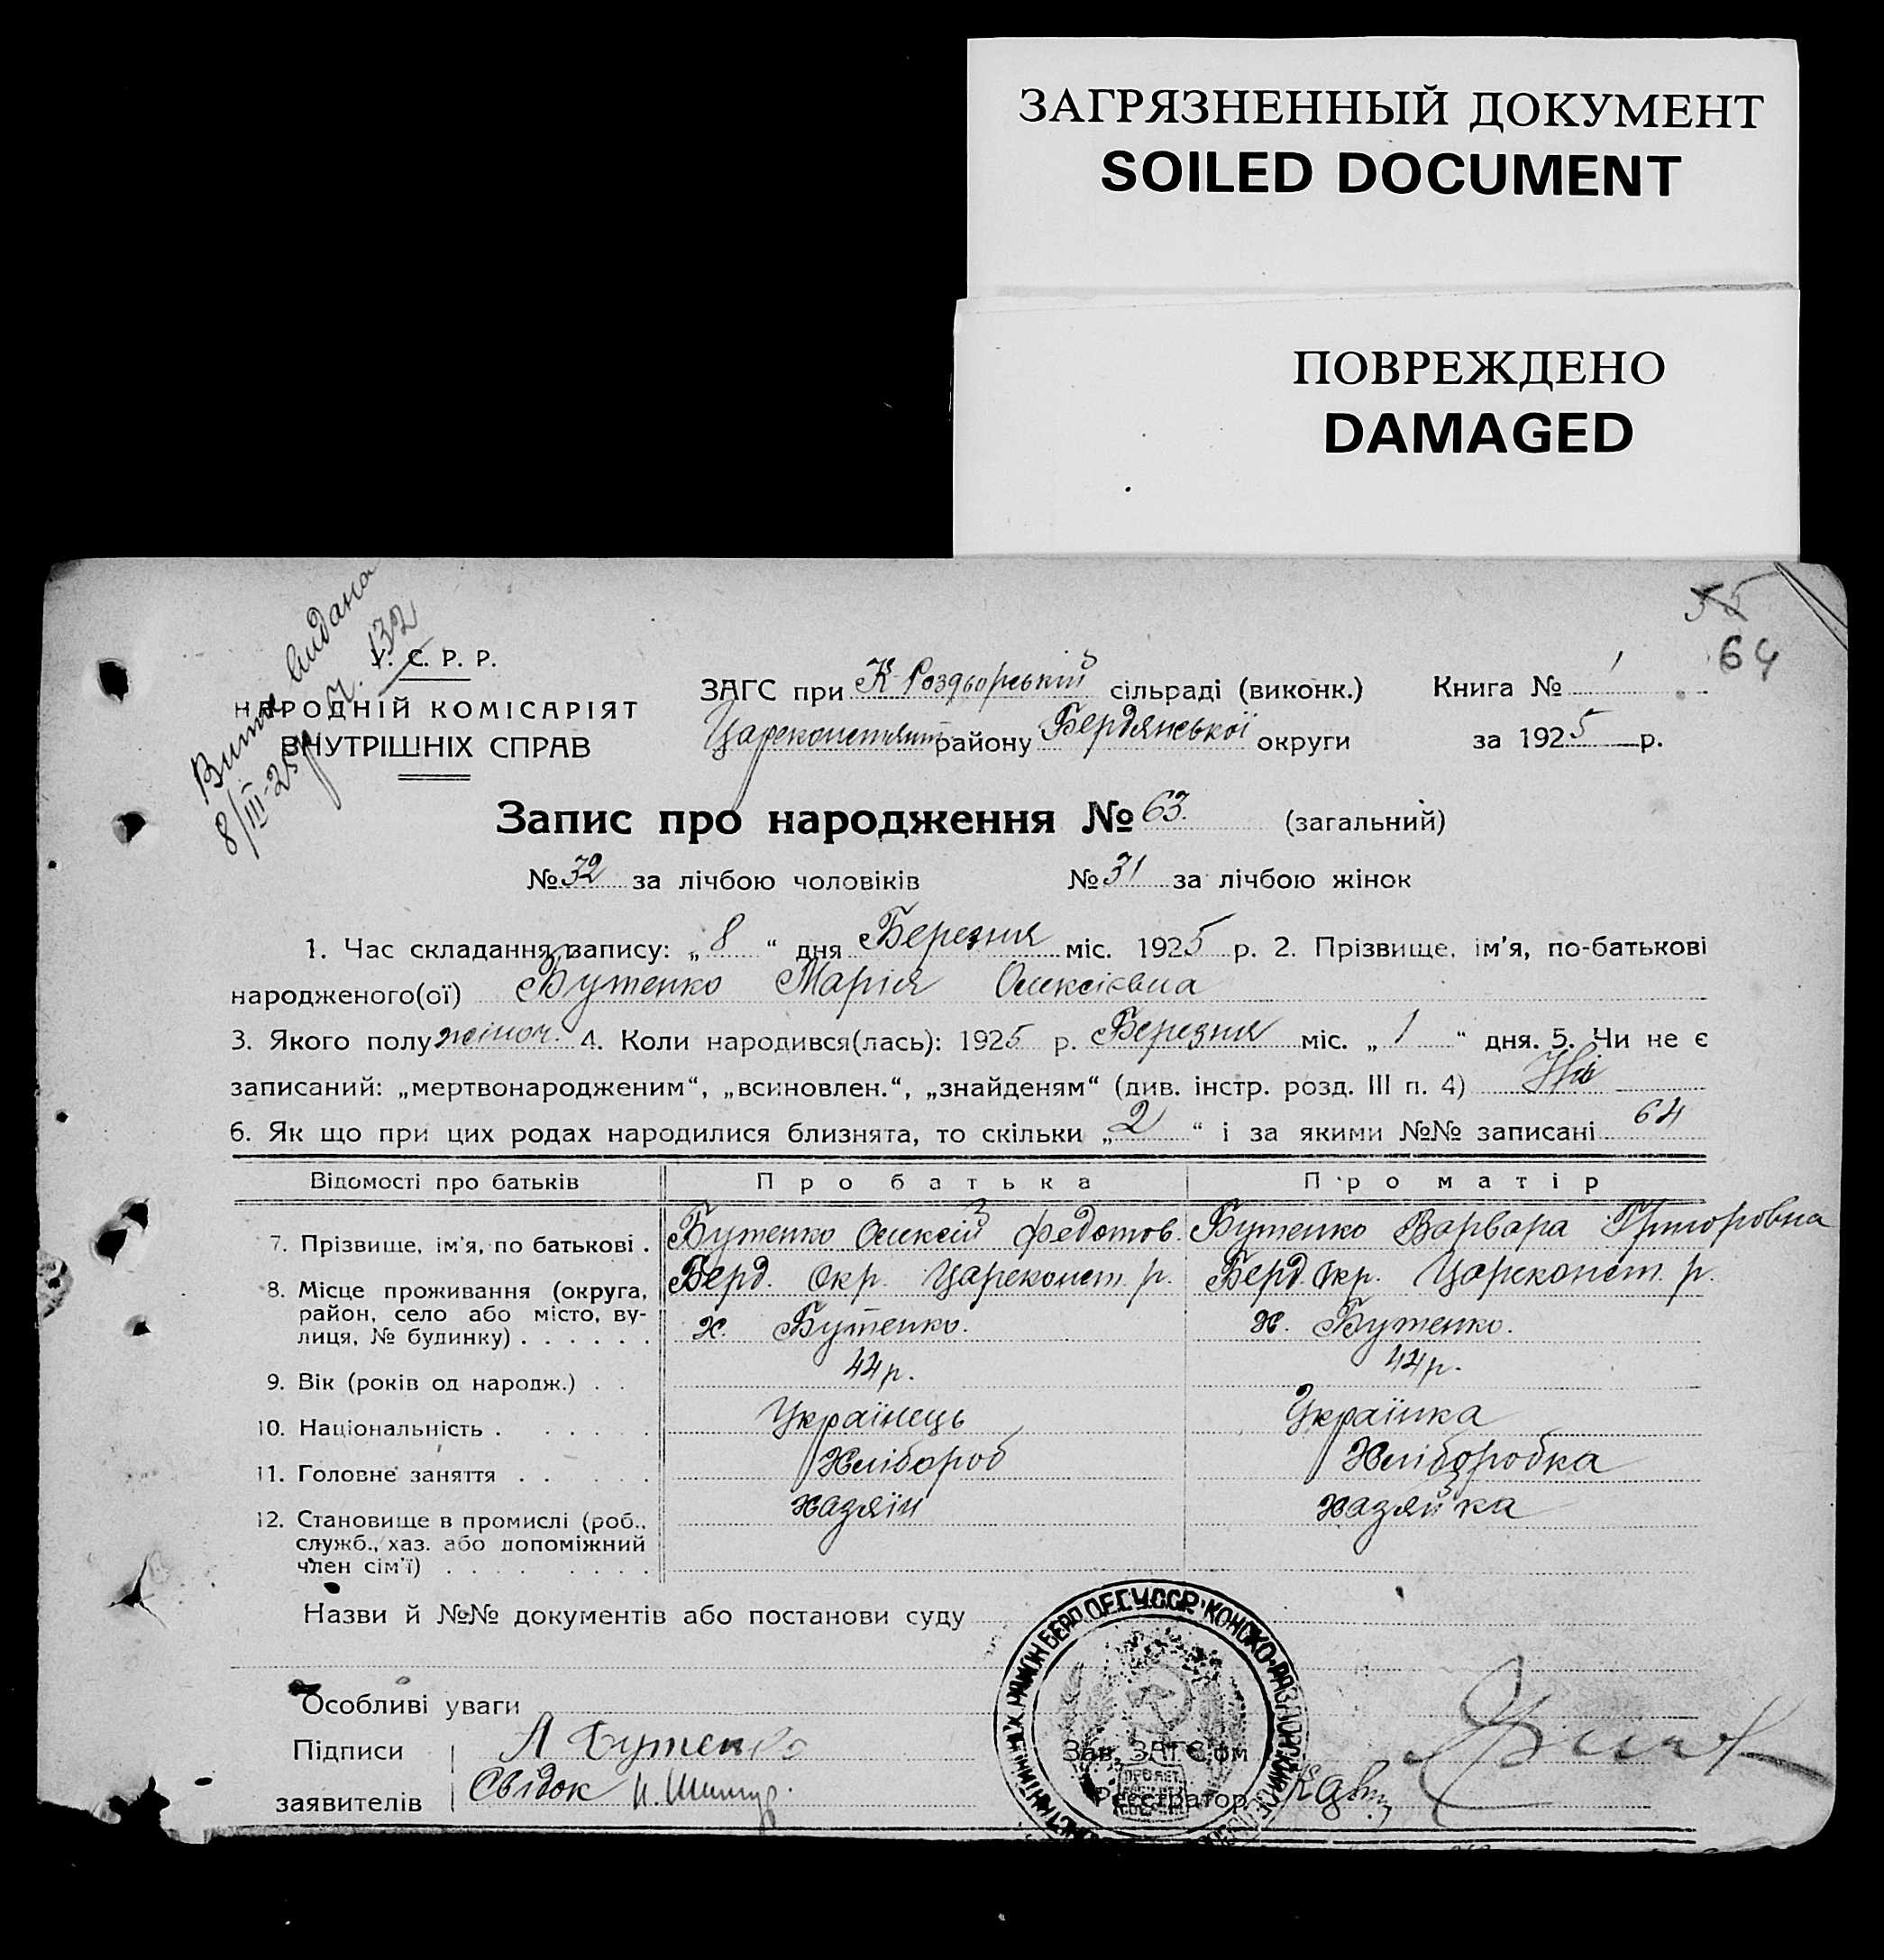 ЗАГРЯЗНЕННЫЙ ДОКУМЕНТ
SOILED DOCUMENT
ПОВРЕЖДЕНО
DAMAGED
55
64
Витяг видана
8/III-25 р. 132
У. С. Р. Р.
НАРОДНІЙ КОМІСАРІЯТ
ВНУТРІШНІХ СПРАВ
ЗАГС при К-Роздорській сільраді (виконк.) Книга № 1
Цареконстянт району Бердянської округи за 1925 р.
Запис про народження № 63. (загальний)
№ 32 за лічбою чоловіків № 31 за лічбою жінок
1. Час складання запису: „8“ дня Березня міс. 1925 р. 2. Прізвище, ім'я, по-батькові
народженого(ої) Бутенко Марія Олексієвна
3. Якого полу жіноч. 4. Коли народився(лась): 1925 р. Березня міс. „1“ дня. 5. Чи не є
записаний: „мертвонародженим“, „всиновлен.“, „знайденям“ (див. інстр. розд. III п. 4) Ні
6. Як що при цих родах народилися близнята, то скільки „2“ і за якими №№ записані 64
Відомості про батьків Про батька Про матір
7. Прізвище, ім'я, по батькові . Бутенко Олексій Федотов. Бутенко Варвара Григоровна
8. Місце проживання (округа, Берд. Окр. Цареконст. р. Берд. Окр. Цареконст. р.
район, село або місто, ву-
лиця, № будинку) . . . . . . х. Бутенко. х. Бутенко.
9. Вік (років од народж.) . . 44 р. 44 р.
10. Національність . . . . . . Українець Українка
11. Головне заняття . . . . . Хлібороб Хліборобка
12. Становище в промислі (роб., хазяїн хазяйка
служб., хаз. або допоміжний
член сім'ї) . . . . . . . .
Назви й №№ документів або постанови суду
Особливі уваги
Підписи А Бутенко Зав. ЗАГС'ом
заявителів Свідок Реєстратор